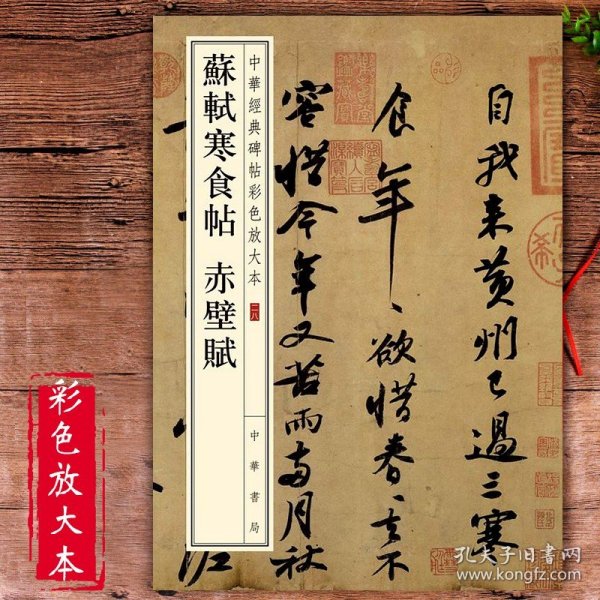 自我来黄州已過三寒
食年、欲惜春、去不
容惜今年又苦雨兩月秋
中華經典碑帖彩色放大本
二八
蘇軾寒食帖 赤壁賦
中華書局
彩色放大本
孔夫子旧書网
www.kongfz.com